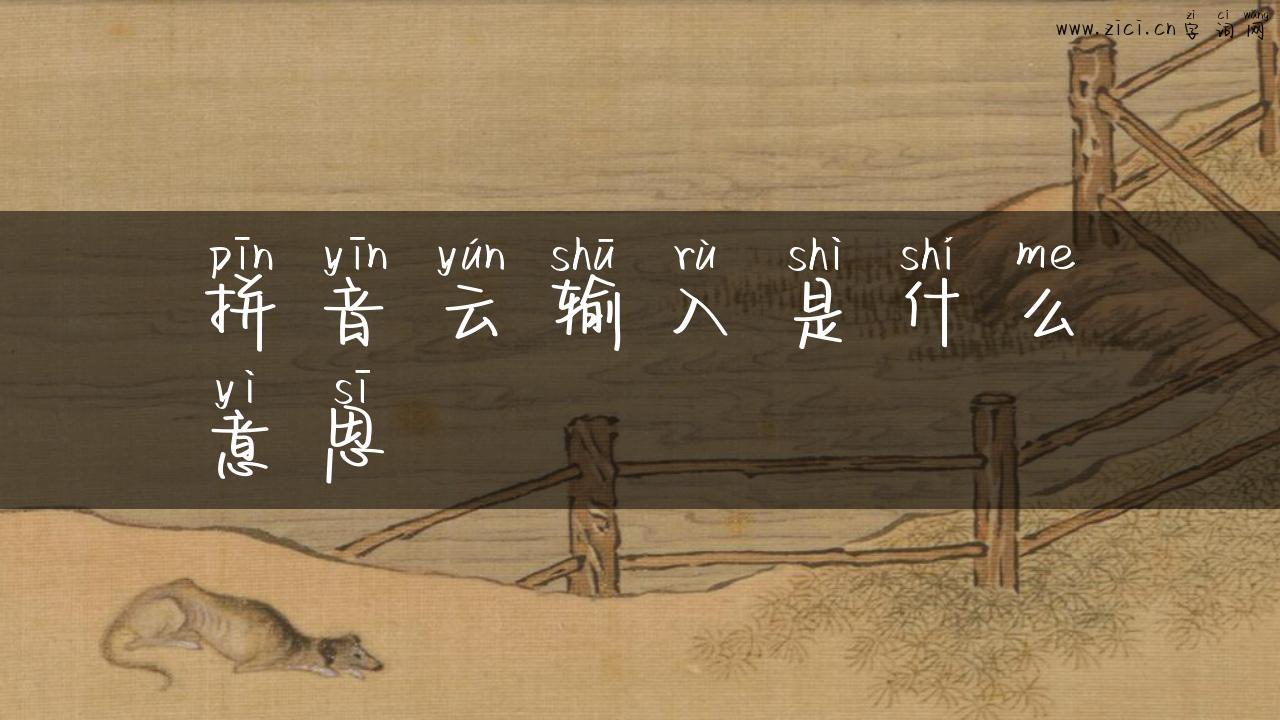 zì cí wǎng
www.zici.cn 字词网
pīn yīn yún shū rù shì shí me
拼音云输入是什么
yì sī
意思